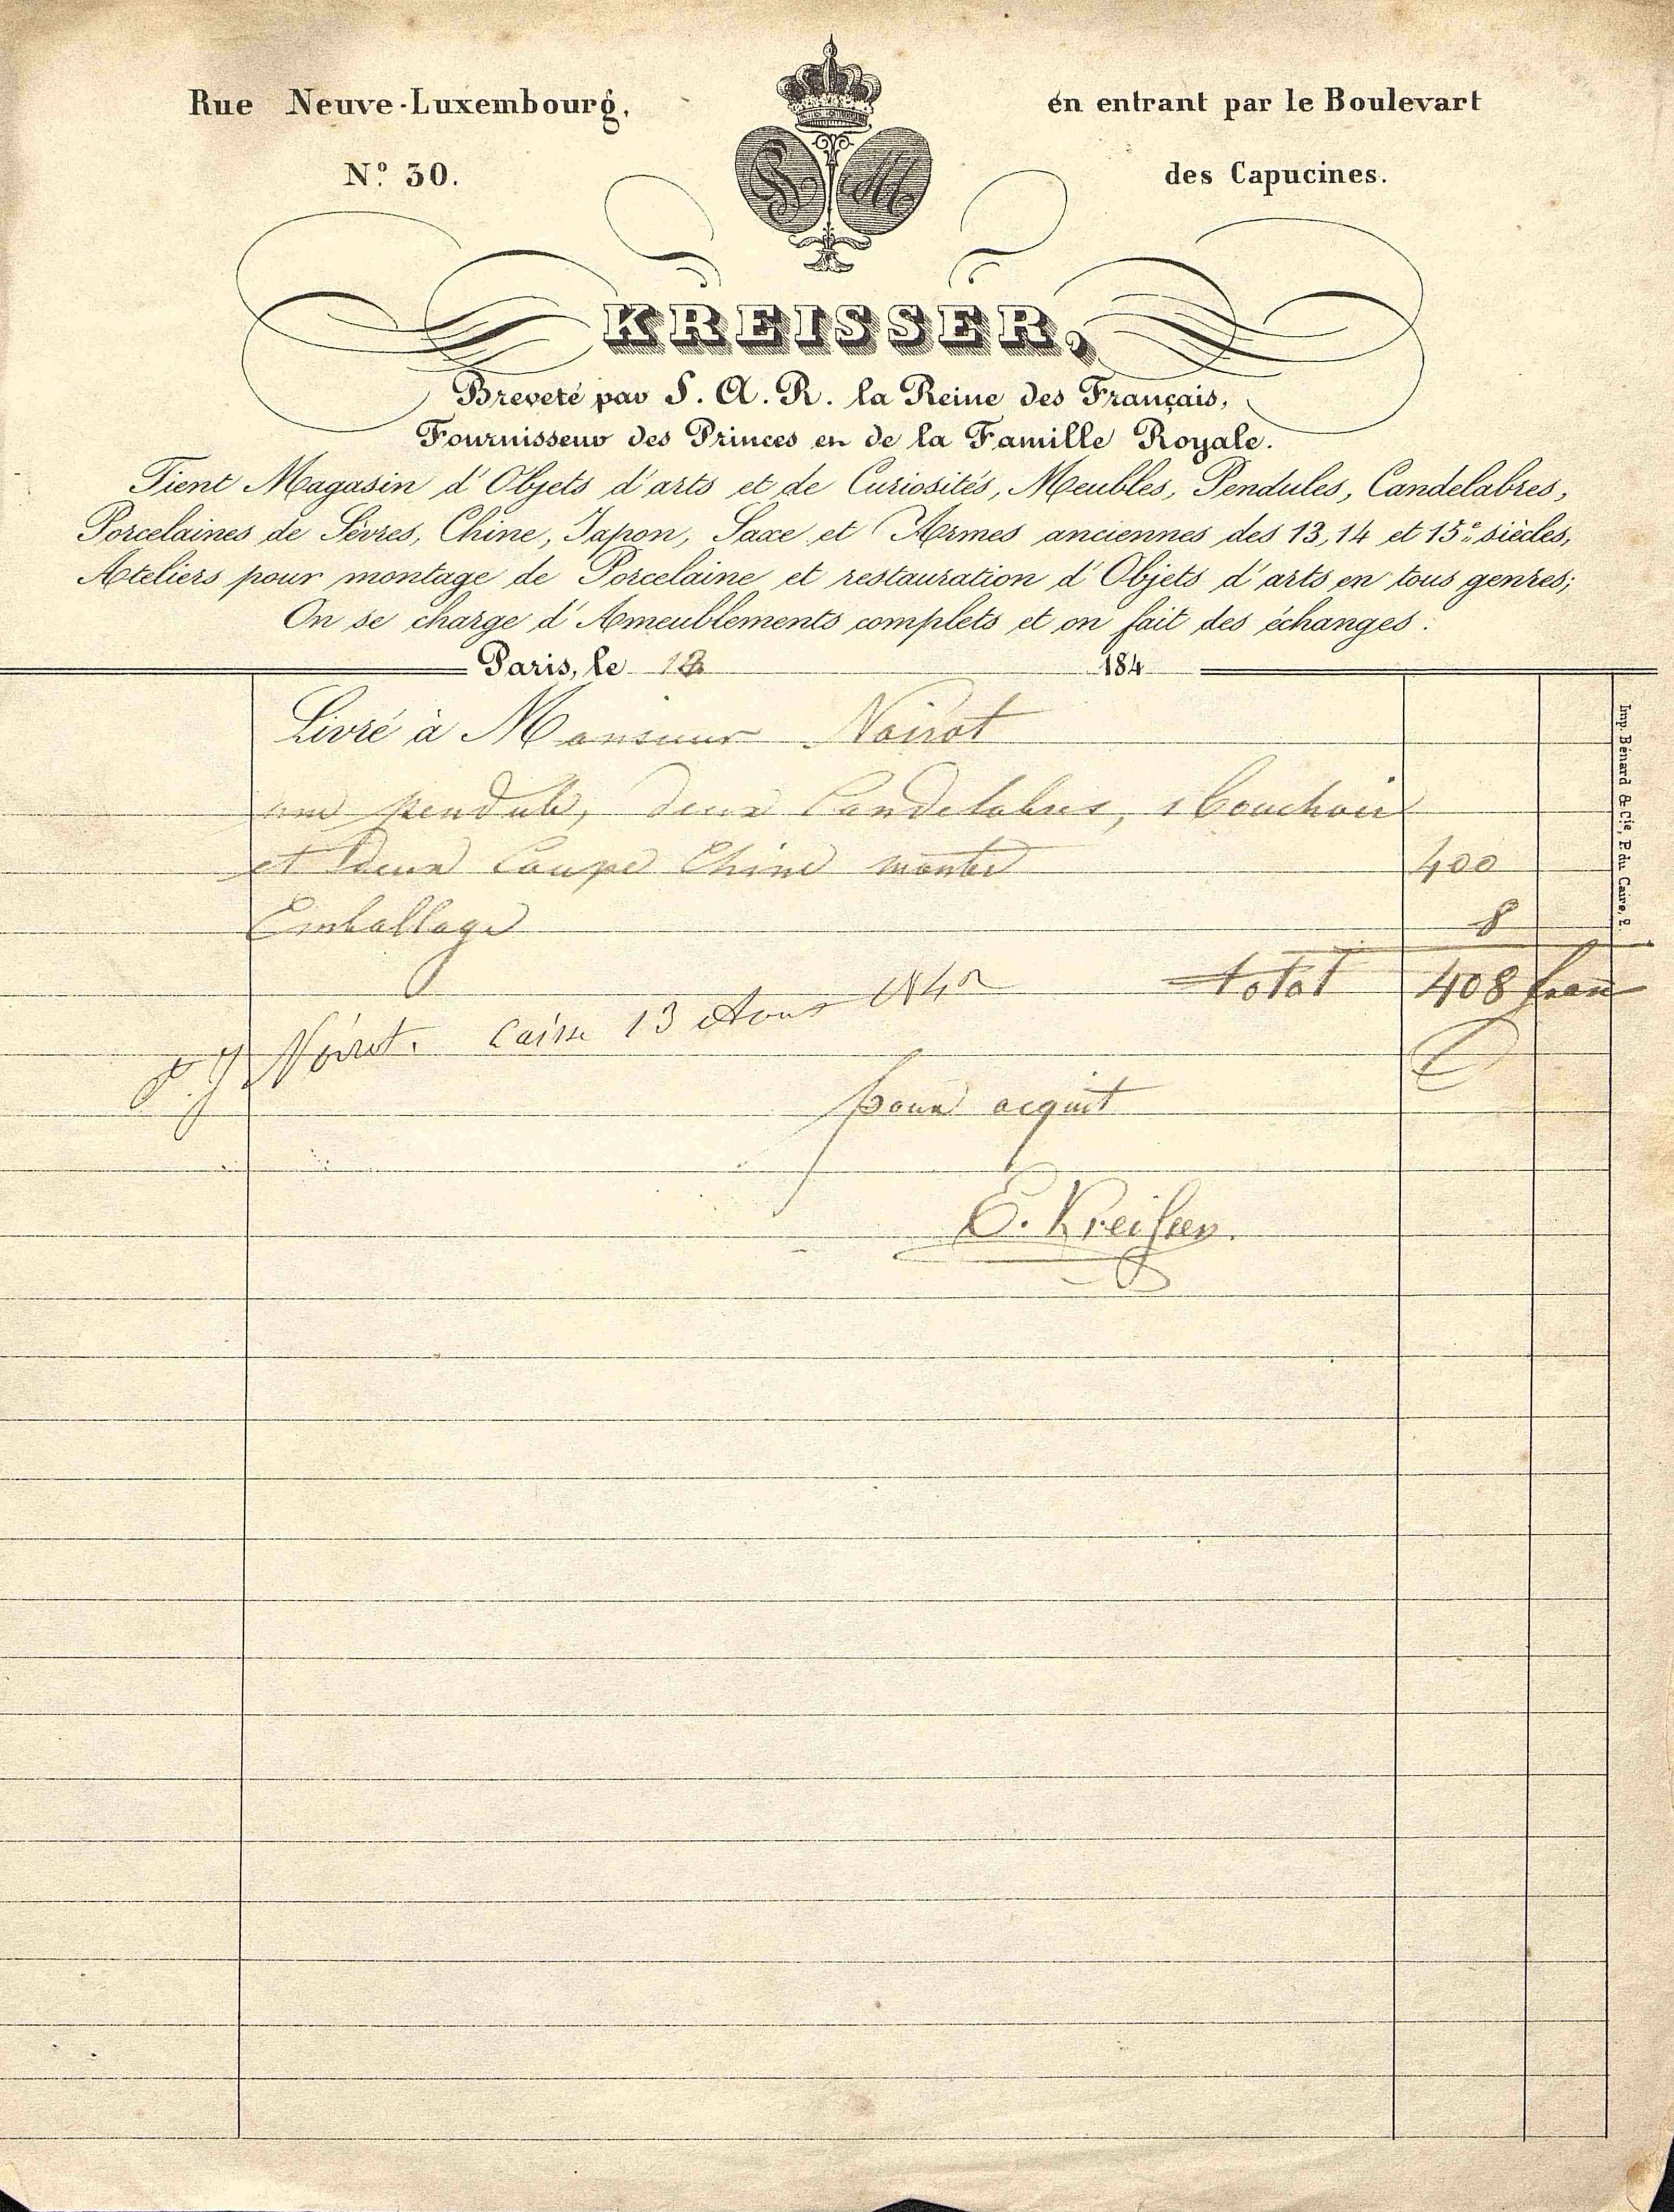 Rue Neuve-Luxembourg,
Nº 30.
en entrant par le Boulevart
des Capucines.
KREISSER,
Breveté par S. A. R. la Reine des Français,
Fournisseur des Princes et de la Famille Royale.
Tient Magasin d'Objets d'arts et de Curiosités, Meubles, Pendules, Candelabres,
Porcelaines de Sèvres, Chine, Japon, Saxe et Armes anciennes des 13, 14 et 15e siècles,
Ateliers pour montage de Porcelaine et restauration d'Objets d'arts en tous genres;
On se charge d'Ameublements complets et on fait des échanges.
Paris, le 184
Livré à Monsieur Noirot
une pendule, deux Candelabres,
et deux Coupe Chine monté 400
Emballage 8
total 408 fran
Noirot. Caisse 13 1842
pour acquit
E. Kreisser.
Imp. Bénard & Cie, P. du Caire, 2